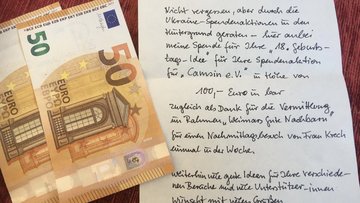 50
EURO
50
EURO
Nicht vergessen, aber durch die
Ukraine-Spendenaktionen in den
Hintergrund geraten – hier anbei
meine Spende für Ihre "18. Geburts-
tags-Idee" für Ihre Spendenaktion
für "Camsin e.V." in Höhe von
100,- Euro in bar
zugleich als Dank für die Vermittlung
im Rahmen, Weimars Gute Nachbarn
für einen Nachmittagsbesuch von Frau Krech
einmal in der Woche.
Weiterhin viele gute Ideen für Ihre verschiede-
nen Bereiche und viele Unterstützer-innen
Wünscht mit vielen Grüßen